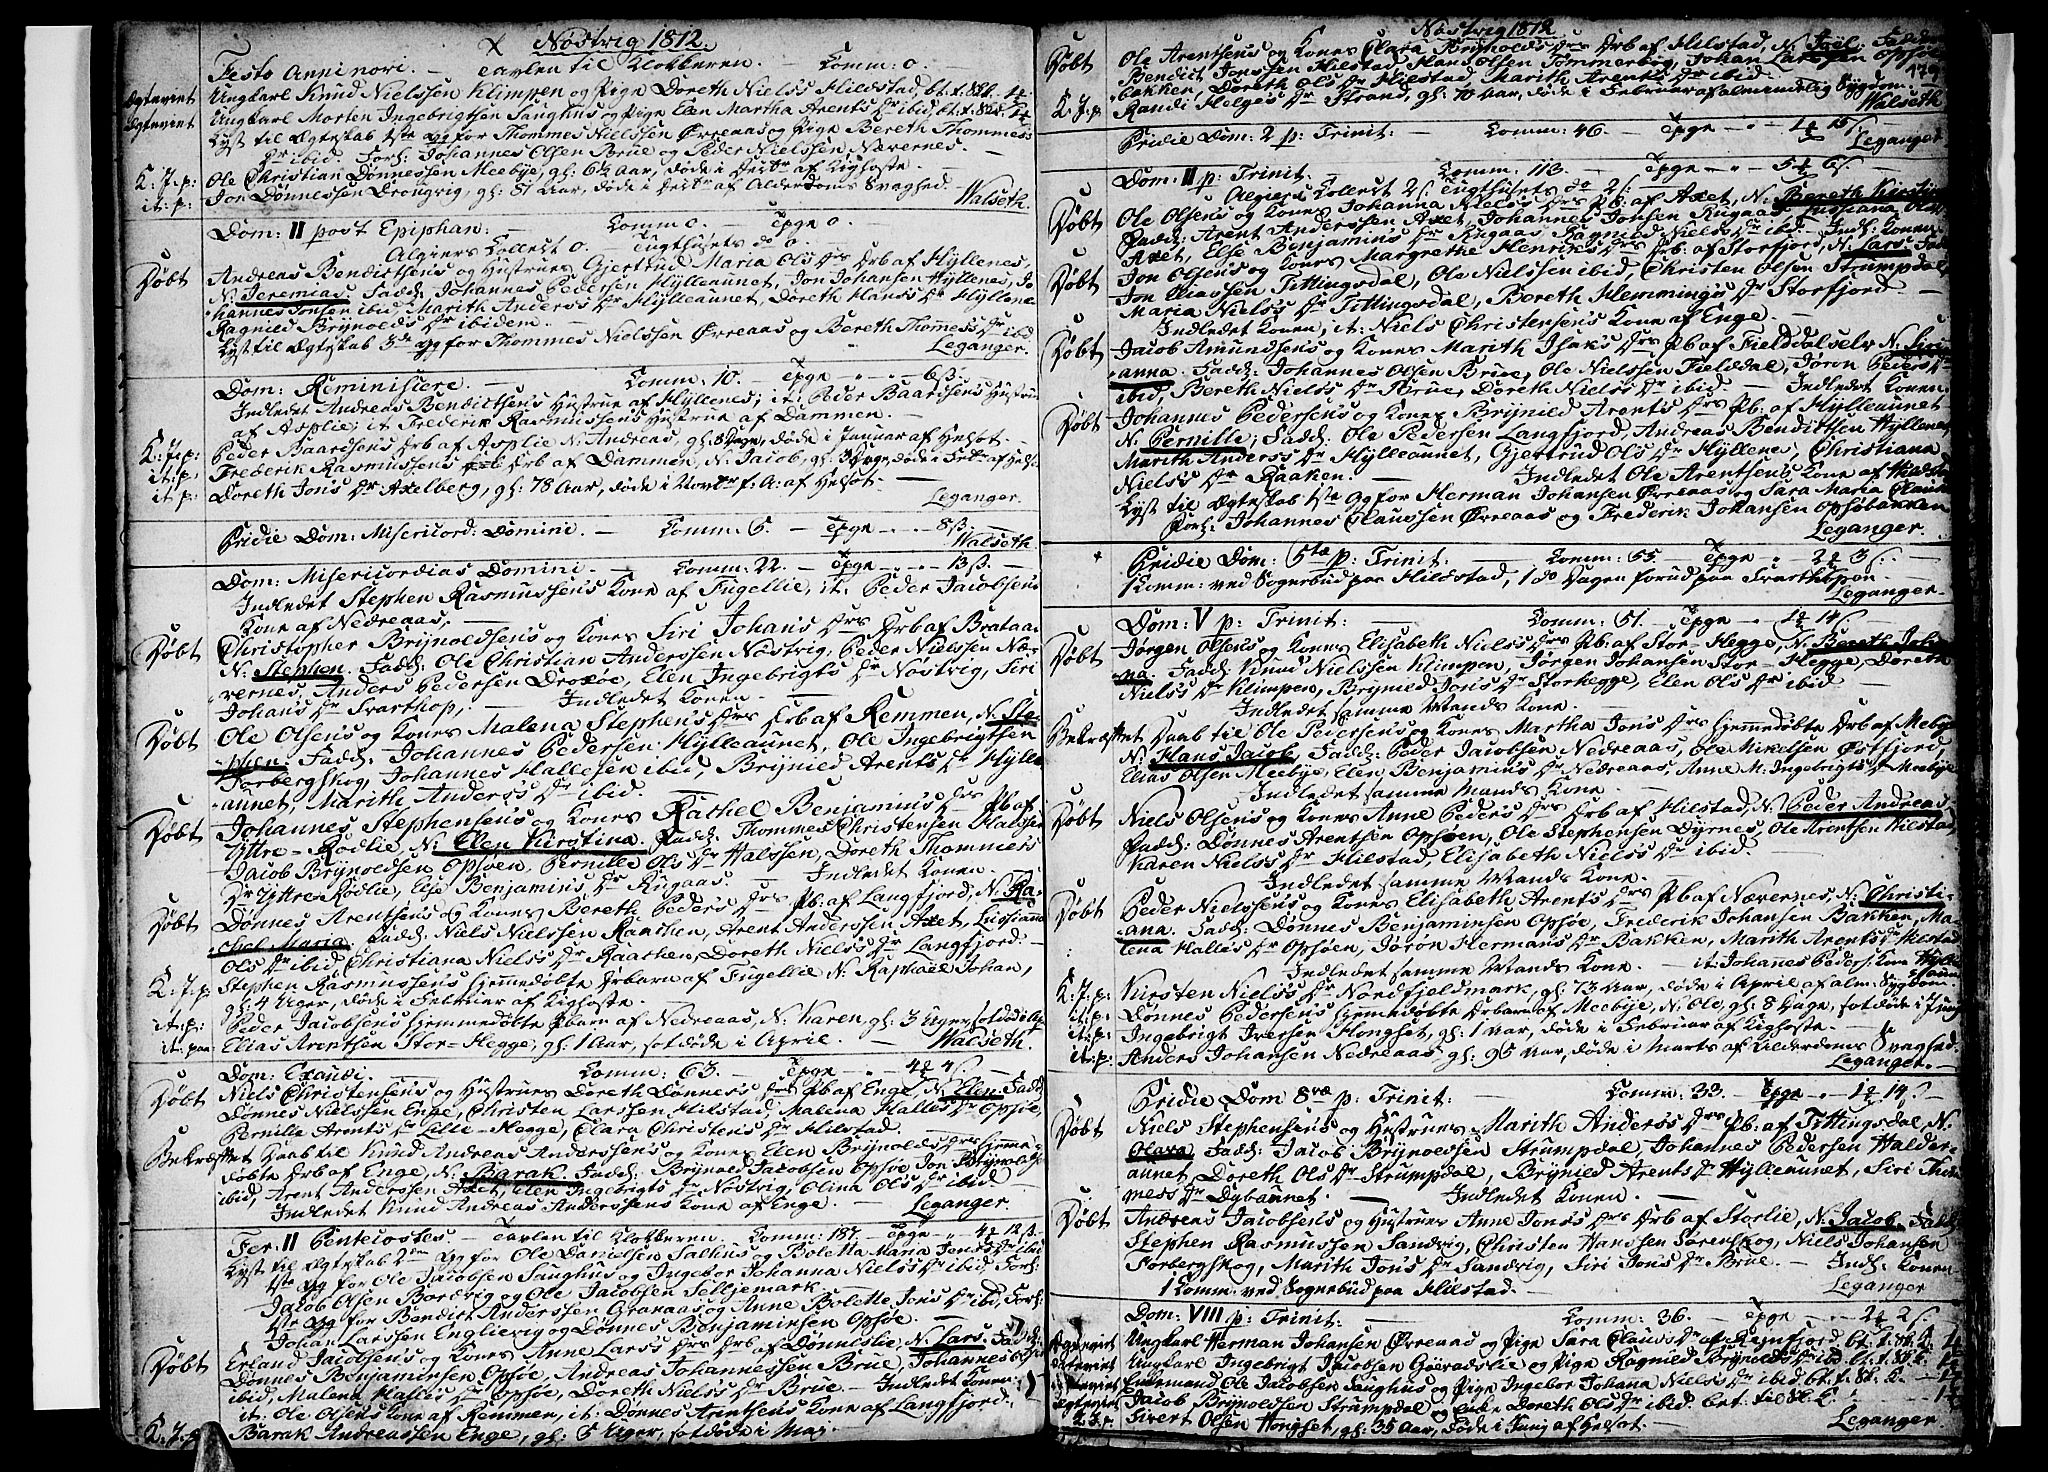 Nöstvig 1812.
Festo Anni novi. — Tavlen til Klokkeren. — Comm: 0.
Ægteviet Ungkarl Knud Nielssen Klimpen og Pige Doreth Nielss Hildstad, bt. f.
Ægteviet Ungkarl Morten Ingebrigthsen Saughus og Pige Elen Martha Arents Dr ibid, bt. f.
Lyst til Ægteskab 1ste Gg for Thommes Nielssen Örreaas og Pige Bereth Thommess
Dr ibid. Forl: Johannes Olsen Brue og Peder Nielssen Nævernes. —
K: J: p: Ole Christian Dönnessen Meebÿe, gl: 6½ Aar, döde i Decbr af Kighoste.
it: p: Jon Dönnessen Drongvig, gl: 81 Aar, döde i Decbr af Alderdoms Svaghed. — Walseth.
Dom: II post Epiphan: — Comm: 0. — Tpge 0.
Algiers Collect 0. Tugthusets do 0.
Döbt Andreas Bendicthsen's og Hustrues Gjertrud Maria Ols Drs Ærb af Hÿllenes,
N: Jeremias. Fadd: Johannes Pedersen Hÿlleaunet, Jon Johansen Hÿllenes, Jo-
hannes Jonsen ibid, Marith Anderss Dr Hÿlleaunet, Doreth Hans's Dr Hÿllenes
Ragnild Brÿnolds Dr ibidem. —
Lyst til Ægteskab 3die Gg for Thommes Nielssen Örreaas og Bereth Thomess Dr ibid
Leganger.
Dom: Reminiscere. — Comm: 10. — Tpge — 6 ß. —
Indledet Andreas Bendicthsen's Hustrue af Hÿllenes; it: Peder Baardsens Hustrue
af Asplie; it: Frederik Rasmussens Hustrue af Dammen. —
K: J: p: Peder Baardsens Ærb af Asplie N: Andreas, gl: 8 Dage, döde i Januar af Helsot. —
it: p: Frederik Rasmussens Ærb af Dammen, N: Jacob, gl: 3 Dage, döde i Febr af Helsot
it: p: Doreth Jons Dr Axelberg, gl: 78 Aar, döde i Novbr f: A: af Helsot. —
Leganger.
Pridie Dom: Misericord: Domini. — Comm: 6. — Tpge — 8 ß. —
Walseth
Dom: Misericordias Domini. — Comm: 22. — Tpge — 13 ß. —
Indledet Stephen Rasmussens Kone af Fugellie, it: Peder Jacobsens
Kone af Nedreaas.
Döbt Christopher Brÿnoldsens og Kones Siri Johans Drs Ærb af Brataas
N: Stephen. Fadd: Ole Christian Anderssen Nöstvig, Peder Nielssen Næ-
vernes, Anders Pedersen Dröxöe, Elen Ingebrigts Dr Nöstvig, Siri
Johans Dr Svarthop, — Indledet Konen. —
Döbt Ole Olsens og Kones Malena Stephens Drs Ærb af Remmen, N: Ste-
phen. Fadd: Johannes Pedersen Hÿlleaunet, Ole Ingebrigtsen
Forbergskog, Johannes Hallesen ibid, Brÿnild Arents Dr Hÿlle-
aunet, Marith Anderss Dr ibid. —
Döbt Johannes Stephensens og Kones Rachel Benjamins Drs Pb af
Yttre-Rödlie, N: Elen Kirstina. Fadd: Thommes Christensen Halssen
Jacob Brÿnoldsen Opsöen, Pernille Ols Dr Halssen, Doreth Thommess
Dr Yttre-Rödlie, Else Benjamins Dr Rugaas. — Indledet Konen.
Döbt Dönnes Arentsens og Kones Bereth Peders Drs Pb: af Langfjord, N: Ra-
chel Maria. Fadd: Niels Nielssen Raachen, Arent Anderssen Axet, Lussiana
Ols Dr ibid, Christiana Niels's Dr Raachen, Doreth Niels's Dr Langfjord. —
K: J: p: Stephen Rasmussens hjemmedöbte Ærbarn af Fugellie N: Raphael Johan,
gl: 4 Uger, döde i Februar af Kighoste. —
it: p: Peder Jacobsens hjemmedöbte Pbarn af Nedreaas, N: Karen, gl: 3 Uger, sotdöde i
it: paa Elias Arentsen Stor-Hegge, gl: 1 Aar, sotdöde i April. — Walseth.
Dom: Exaudi. — Comm: 63. — Tpge
Döbt Niels Christensens og Hustrues Doreth Dönness Drs Pb af Enge, N: Elen. Fadd:
Dönnes Nielssen Enge, Christen Larssen Hilstad, Malena Halles Dr Opsöe,
Pernille Arents Dr Lille-Hegge, Clara Christens Dr Hilstad. —
Bekræftet Daab til Knud Andreas Anderssens og Kones Elen Brÿnolds Drs hjemme-
döbte Ærb af Enge, N: Barak. Fadd: Brÿnold Jacobsen Opsöe, Jon Brÿnoldsen
ibid, Arent Anderssen Axet, Elen Ingebrigts Dr Nöstvig, Olina Ols Dr ibid —
Indledet Knud Andreas Anderssens Kone af Enge. — Leganger.
Fer: II Pentecostes — Tavlen til Klokkeren. Comm: 187. — Tpge
Lyst til Ægteskab 2den Gg for Ole Danielsen Salhus og Boletta Maria Jons Dr ibid
1ste Gg for Ole Jacobsen Saughus og Ingebor Johanna Niels's Dr ibid. Forl:
Jacob Olsen Bordvig og Ole Jacobsen Selljemark. —
1ste Gg for Bendict Anderssen Granaas og Anne Bolette Jons Dr ibid, Forl:
Johan Larssen Englievig og Dönnes Benjaminsen Opsöe.
Döbt Erland Jacobsens og Kones Anne Larss Drs Ærb af Dönneslie, N: Lars. Fadd:
Dönnes Benjaminsen Opsöe, Andreas Johannessen Brue, Johannes
ibid, Malena Halles Dr Opsöe, Doreth Niels's Dr Brue. — Indledet Konen
it: Ole Olsens Kone af Remmen, it: Dönnes Arentsens Kone af Langfjord. —
K: J: p: Barak Andreassen Enge, gl: 5 Uger, sotdöde i Maj.
Nöstvig 1812
179
Döbt Ole Arentsens og Kones Clara Brÿnolds Drs Ærb af Hilstad, N: Joël. Fadd:
Bendict Jonssen Hilstad, Hans Olsen Tommervig, Johan Larssen Opsöe-
bakken, Doreth Ols Dr Hilstad, Marith Arents Dr ibid.
K: J: p: Randi Helges Dr Strand, gl: 70 Aar, döde i Februar af almindelig Sÿgdom.
Walseth
Pridie Dom: 2 p: Trinit: Comm: 46. — Tpge
Leganger.
Dom: II p: Trinit. Comm: 113. — Tpge
Algiers Collect 2 ß. Tugthusets do 2 ß. —
Döbt Ole Olsens og Kones Johanna Niels's Drs Pb: af Axet, N: Bereth Kirstina
Fadd: Arent Anderssen Axet, Johannes Johsen Rugaas, Lussiana Ols Dr
Axet, Else Benjamins Dr Rugaas, Ragnild Niels's Dr ibid — Indl: Konen
Döbt Jon Olsens og Kones Margrethe Henriks Drs Pb: af Storfjord, N: Lars. Fadd:
Jon Eliassen Tittingsdal, Ole Nielssen ibid, Christen Olsen Strumpdal,
Maria Niels's Dr Tittingsdal, Bereth Flemming's Dr Storfjord. —
Indledet Konen, it: Niels Christensens Kone af Enge. —
Döbt Jacob Amundsens og Kones Marith Isaks Drs Pb af Fielddalselv N: Siri-
anna. Fadd: Johannes Olsen Brue, Ole Nielssen Fieldal, Jöron Peders Dr
ibid, Bereth Niels's Dr Brue, Doreth Niels's Dr ibid. — Indledet Konen.
Döbt Johannes Pedersens og Kones Brÿnild Arents Drs Pb: af Hÿlleaunet
N: Pernille, Fadd: Ole Pedersen Langfjord, Andreas Bendicthsen Hÿllenes,
Marith Anderss Dr Hÿlleaunet, Gjertrud Ols Dr Hÿllenes, Christiana
Niels's Dr Raaken. — Indledet Ole Arentsens Kone af Hildstad
Lyst til Ægteskab 1ste Gg for Herman Johansen Örreaas og Sara Maria Claus's
Forl: Johannes Claussen Örreaas og Frederik Johansen Opsöbakken
Leganger.
Pridie Dom: 5tæ p: Trinit: — Comm: 55. — Tpge
1 Comm: ved Sognebud paa Hildstad, 1 do Dagen forud paa Svarthopen. —
Leganger. —
Dom: V p: Trinit: — Comm: 51. — Tpge
Döbt Jörgen Olsens og Kones Elisabeth Niels's Drs Pb: af Stor-Hegge, N: Bereth Johan-
na. Fadd: Knud Nielssen Klimpen, Jörgen Johansen Stor-Hegge, Doreth
Niels's Dr Klimpen, Brÿnild Jons Dr Storhegge, Elen Ols Dr ibid. —
Indledet samme Mands Kone. —
Bekræftet Daab til Ole Pedersens og Kones Martha Jons Drs hjemmedöbte Ærb af Meebÿe
N: Hans Jacob. Fadd: Peder Jacobsen Nedreaas, Ole Mikelsen Östfjord,
Elias Olsen Meebÿe, Elen Benjamins Dr Nedreaas, Anne M. Ingebrigts Dr Meebÿe
Indledet samme Mands Kone. —
Döbt Niels Olsens og Kones Anne Peders Drs Ærb af Hilstad, N: Peder Andreas
Fadd: Dönnes Arentsen Opsöen, Ole Stephensen Dyrnes, Ole Arentsen Hilstad,
Karen Niels's Dr Hilstad, Elisabeth Niels's Dr ibid. —
Indledet samme Mands Kone. —
Döbt Peder Nielssens og Kones Elisabeth Arents Drs Pb af Nævernes, N: Christi-
ana. Fadd: Dönnes Benjaminsen Opsöe, Frederik Johansen Bakken, Ma-
lena Halles Dr Opsöen, Jöron Hermans Dr Bakken, Marith Arents Dr Hilstad
Indledet samme Mands Kone. it: Johanes Peders: Kone Hÿlle-
aunet
K: J: p: Kirsten Niels's Dr Nordfjeldmark, gl: 73 Aar, döde i April af alm: Sÿgdom.
it: p: Dönnes Pedersens hjemmedöbte Ærbarn af Meebÿe, N: Ole, gl: 8 Dage, sotdöde i Junj
it: p: Ingebrigt Iversen Hongset, gl: 1 Aar, döde i Februar af Kighoste. —
it: p: Anders Johansen Nedreaas gl: 95 Aar, döde i Marts af Alderdoms Svaghed.
Leganger. —
Pridie Dom 8væ p: Trinit: Comm: 33. — Tpge
Döbt Niels Stephensens og Hustrues Marith Anderss Drs Pb: af Tittingsdal, N:
Olava. Fadd: Jacob Brÿnoldsen Strumpdal, Johannes Pedersen Halder-
aunet, Doreth Ols Dr Strumpdal, Brÿnild Arents Dr Hÿlleaunet, Siri Thom-
mess Dr Dybaunet. — Indledet Konen. —
Döbt Andreas Jacobsens og Hustrues Anne Jons's Drs Ærb af Storlie, N: Jacob. Fadd:
Stephen Rasmussen Sandvig, Christen Hanssen Sörenskog, Niels Johansen
Forbergskog, Marith Jons Dr Sandvig, Siri Jons Dr Brue. — Indl: Konen
1 Comm: ved Sognebud paa Hilstad. — Leganger
Dom: VIII p: Trinit: Comm: 36. — Tpge
Ægteviet Ungkarl Herman Johansen Örreaas og Pige Sara Claus's Dr af Ranfjord bt. f.
Ægteviet Ungkarl Ingebrigt Jacobsen Gaeradslie og Pige Ragnild Brÿnolds Dr ibid. bt. f.
Ægteviet Enkemand Ole Jacobsen Saughus og Pige Ingebor Johana Niels's Dr ibid. bt. f.
Ægteviet Jacob Brÿnoldsen Strumpdal og Enke Doreth Ols Dr ibid. bet. til
K: J: p. Sivert Olsen Hongset, gl: 35 Aar, döde i Junj af Helsot. Leganger.